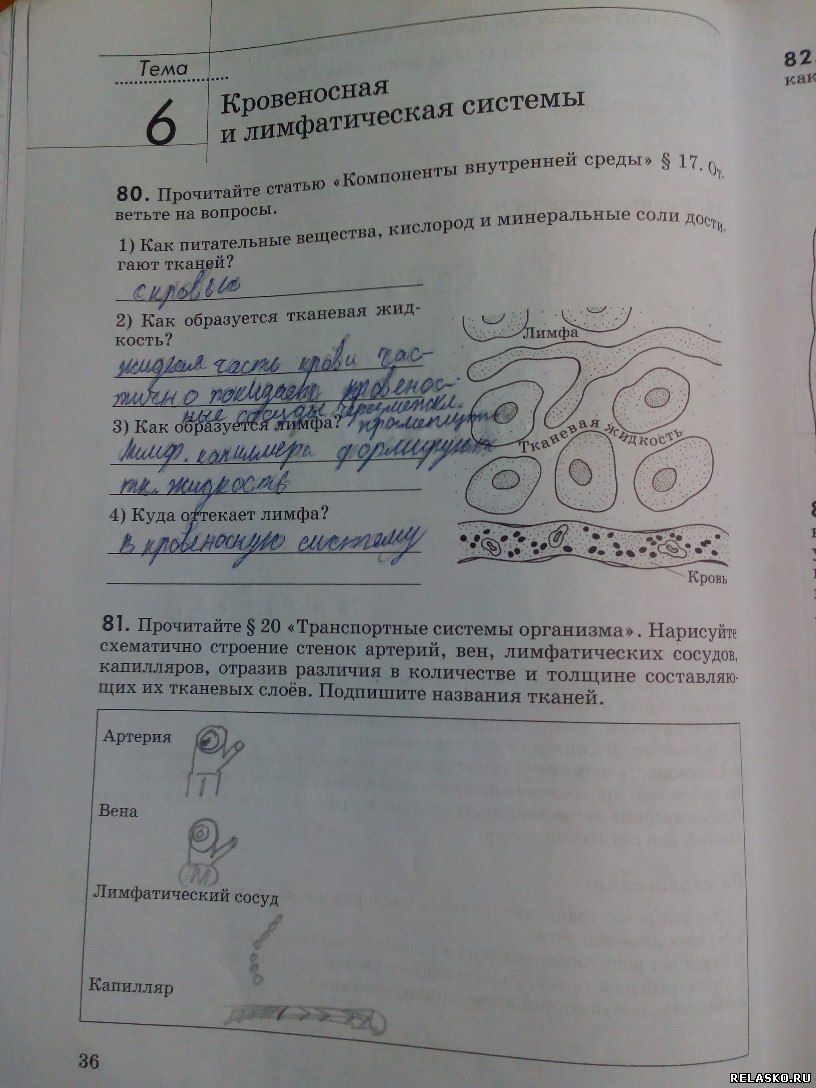 Тема
6
Кровеносная
и лимфатическая системы
82.
как
80. Прочитайте статью «Компоненты внутренней среды» § 17. От-
ветьте на вопросы.
1) Как питательные вещества, кислород и минеральные соли дости-
гают тканей?
с кровью
2) Как образуется тканевая жид-
кость?
жидкая часть крови час-
тично покидает кровенос-
ные сосуды
3) Как образуется лимфа?
Лимф. капилляра формируют
тк. жидкость
4) Куда оттекает лимфа?
в кровеносную систему
Лимфа
Тканевая жидкость
Кровь
81. Прочитайте § 20 «Транспортные системы организма». Нарисуйте
схематично строение стенок артерий, вен, лимфатических сосудов,
капилляров, отразив различия в количестве и толщине составляю-
щих их тканевых слоёв. Подпишите названия тканей.
Артерия
Вена
Лимфатический сосуд
Капилляр
36
RELASKO.RU